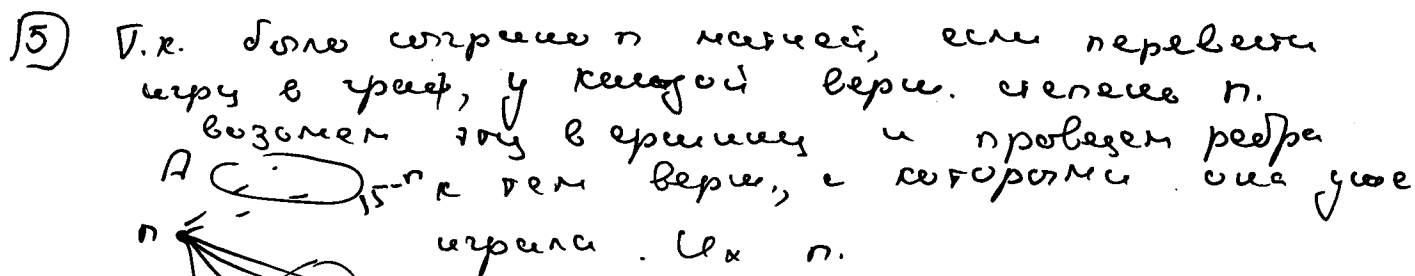 5 Т.к. было сыграно n матчей, если перевести
игру в граф, у каждой верш. степень n.
возьмем эту вершину и проведем ребра
A 15-n к тем верш., с которыми она уже
n играла. Их n.